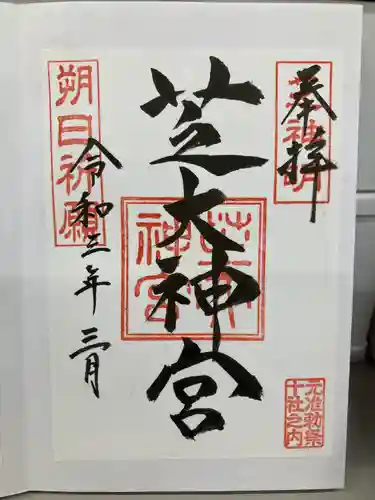 奉拝
芝神明
芝大神宮
芝大神宮
元准勅祭
十社之内
朔日祈願
令和三年三月